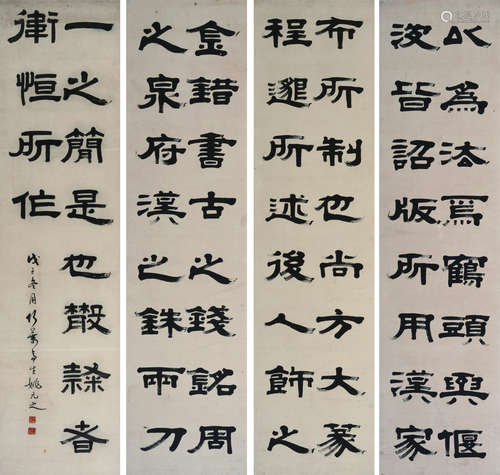 以為法焉鶴頭與偃
波皆詔版所用漢家
布所制也尚方大篆
程邈所述後人飾之
金錯書古之錢銘周
之泉府漢之銖兩刀
一之簡是也散隸者
衛恒所作
戊子冬月竹葉亭生姚元之